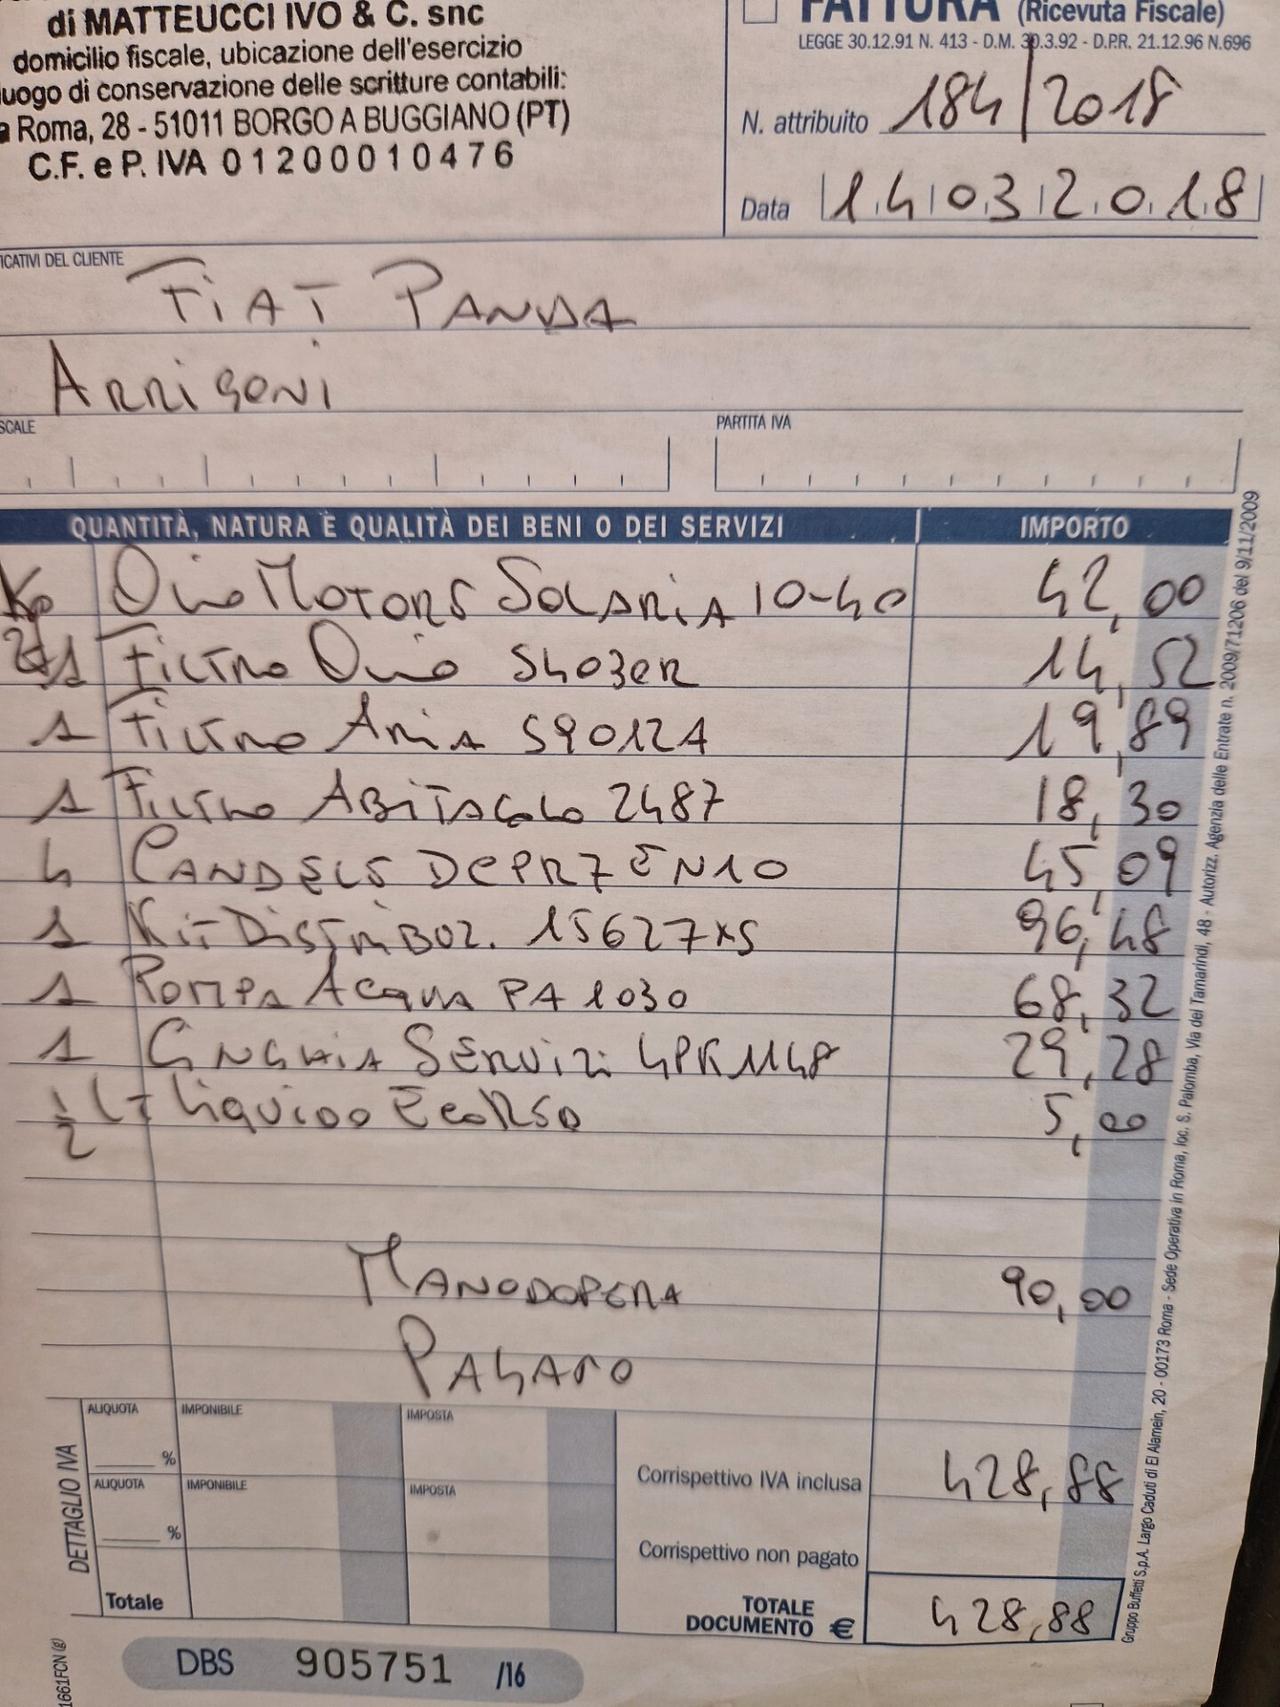 di MATTEUCCI IVO & C. snc
domicilio fiscale, ubicazione dell'esercizio
luogo di conservazione delle scritture contabili:
a Roma, 28 - 51011 BORGO A BUGGIANO (PT)
C.F. e P. IVA 01200010476
FATTURA (Ricevuta Fiscale)
LEGGE 30.12.91 N. 413 - D.M. 30.3.92 - D.P.R. 21.12.96 N.696
N. attribuito 184/2018
Data 14 03 2018
ICATIVI DEL CLIENTE
FIAT PANDA
ARRIGONI
SCALE
PARTITA IVA
QUANTITÀ, NATURA E QUALITÀ DEI BENI O DEI SERVIZI IMPORTO
Kg OLIO MOTORE SOLARIA 10-40 42,00
1 FILTRO OLIO S403ER 14,52
1 FILTRO ARIA S9012A 19,89
1 FILTRO ABITACOLO 2487 18,30
4 CANDELE DCPR7EN10 45,09
1 KIT DISTRIBUZ. 15627XS 96,48
1 POMPA ACQUA PA1030 68,32
1 CINGHIA SERVIZI 4PK1148 29,28
1/2 LT LIQUIDO 5,00
MANODOPERA 90,00
PAGATO
DETTAGLIO IVA
ALIQUOTA IMPONIBILE IMPOSTA
%
ALIQUOTA IMPONIBILE IMPOSTA
%
Totale
Corrispettivo IVA inclusa 428,88
Corrispettivo non pagato
TOTALE DOCUMENTO € 428,88
DBS 905751 /16
1661FCN (g)
Gruppo Buffetti S.p.A. Largo Caduti di El Alamein, 20 - 00173 Roma - Sede Operativa in Roma, loc. S. Palomba, Via del Tamarindi, 48 - Autorizz. Agenzia delle Entrate n. 2009/71206 del 9/11/2009